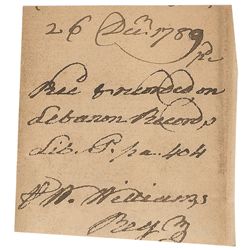 26 Decr. 1789
Rec & recorded on
Lebanon Records
Lib. pa. 404
W. Williams
Reg